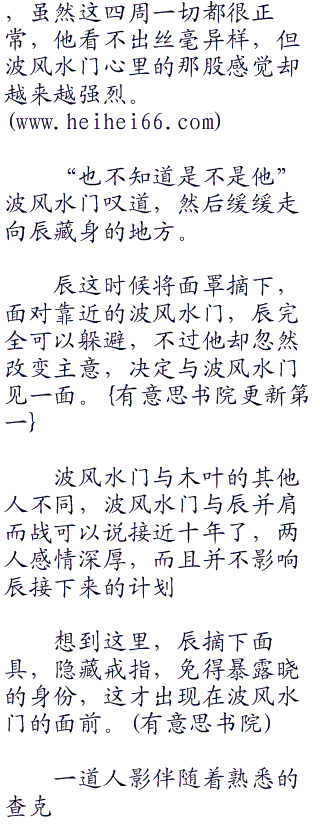 ，虽然这四周一切都很正
常，他看不出丝毫异样，但
波风水门心里的那股感觉却
越来越强烈。
(www.heihei66.com)
“也不知道是不是他”
波风水门叹道，然后缓缓走
向辰藏身的地方。
辰这时候将面罩摘下，
面对靠近的波风水门，辰完
全可以躲避，不过他却忽然
改变主意，决定与波风水门
见一面。{有意思书院更新第
一}
波风水门与木叶的其他
人不同，波风水门与辰并肩
而战可以说接近十年了，两
人感情深厚，而且并不影响
辰接下来的计划
想到这里，辰摘下面
具，隐藏戒指，免得暴露晓
的身份，这才出现在波风水
门的面前。(有意思书院)
一道人影伴随着熟悉的
查克